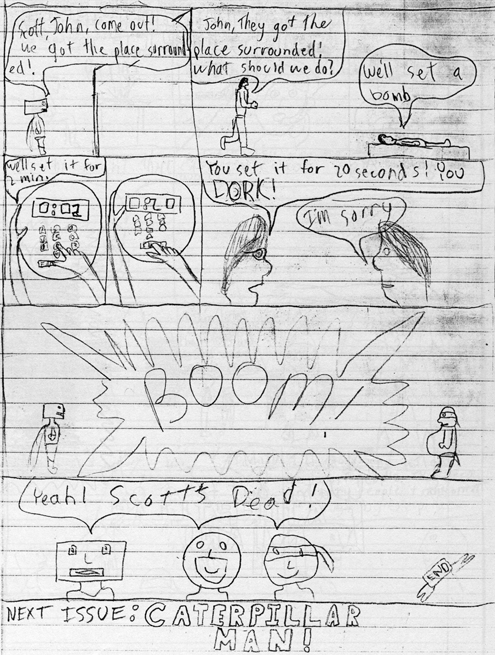 Scott, John, come out!
we got the place surround
ed!
John, They got the
place surrounded!
what should we do?
We'll set a
bomb
We'll set it for
2 min!
0:02
0:20
You set it for 20 seconds! You
DORK!
I'm sorry
BOOM!
Yeah! Scott's Dead!
END
NEXT ISSUE: CATERPILLAR
MAN!